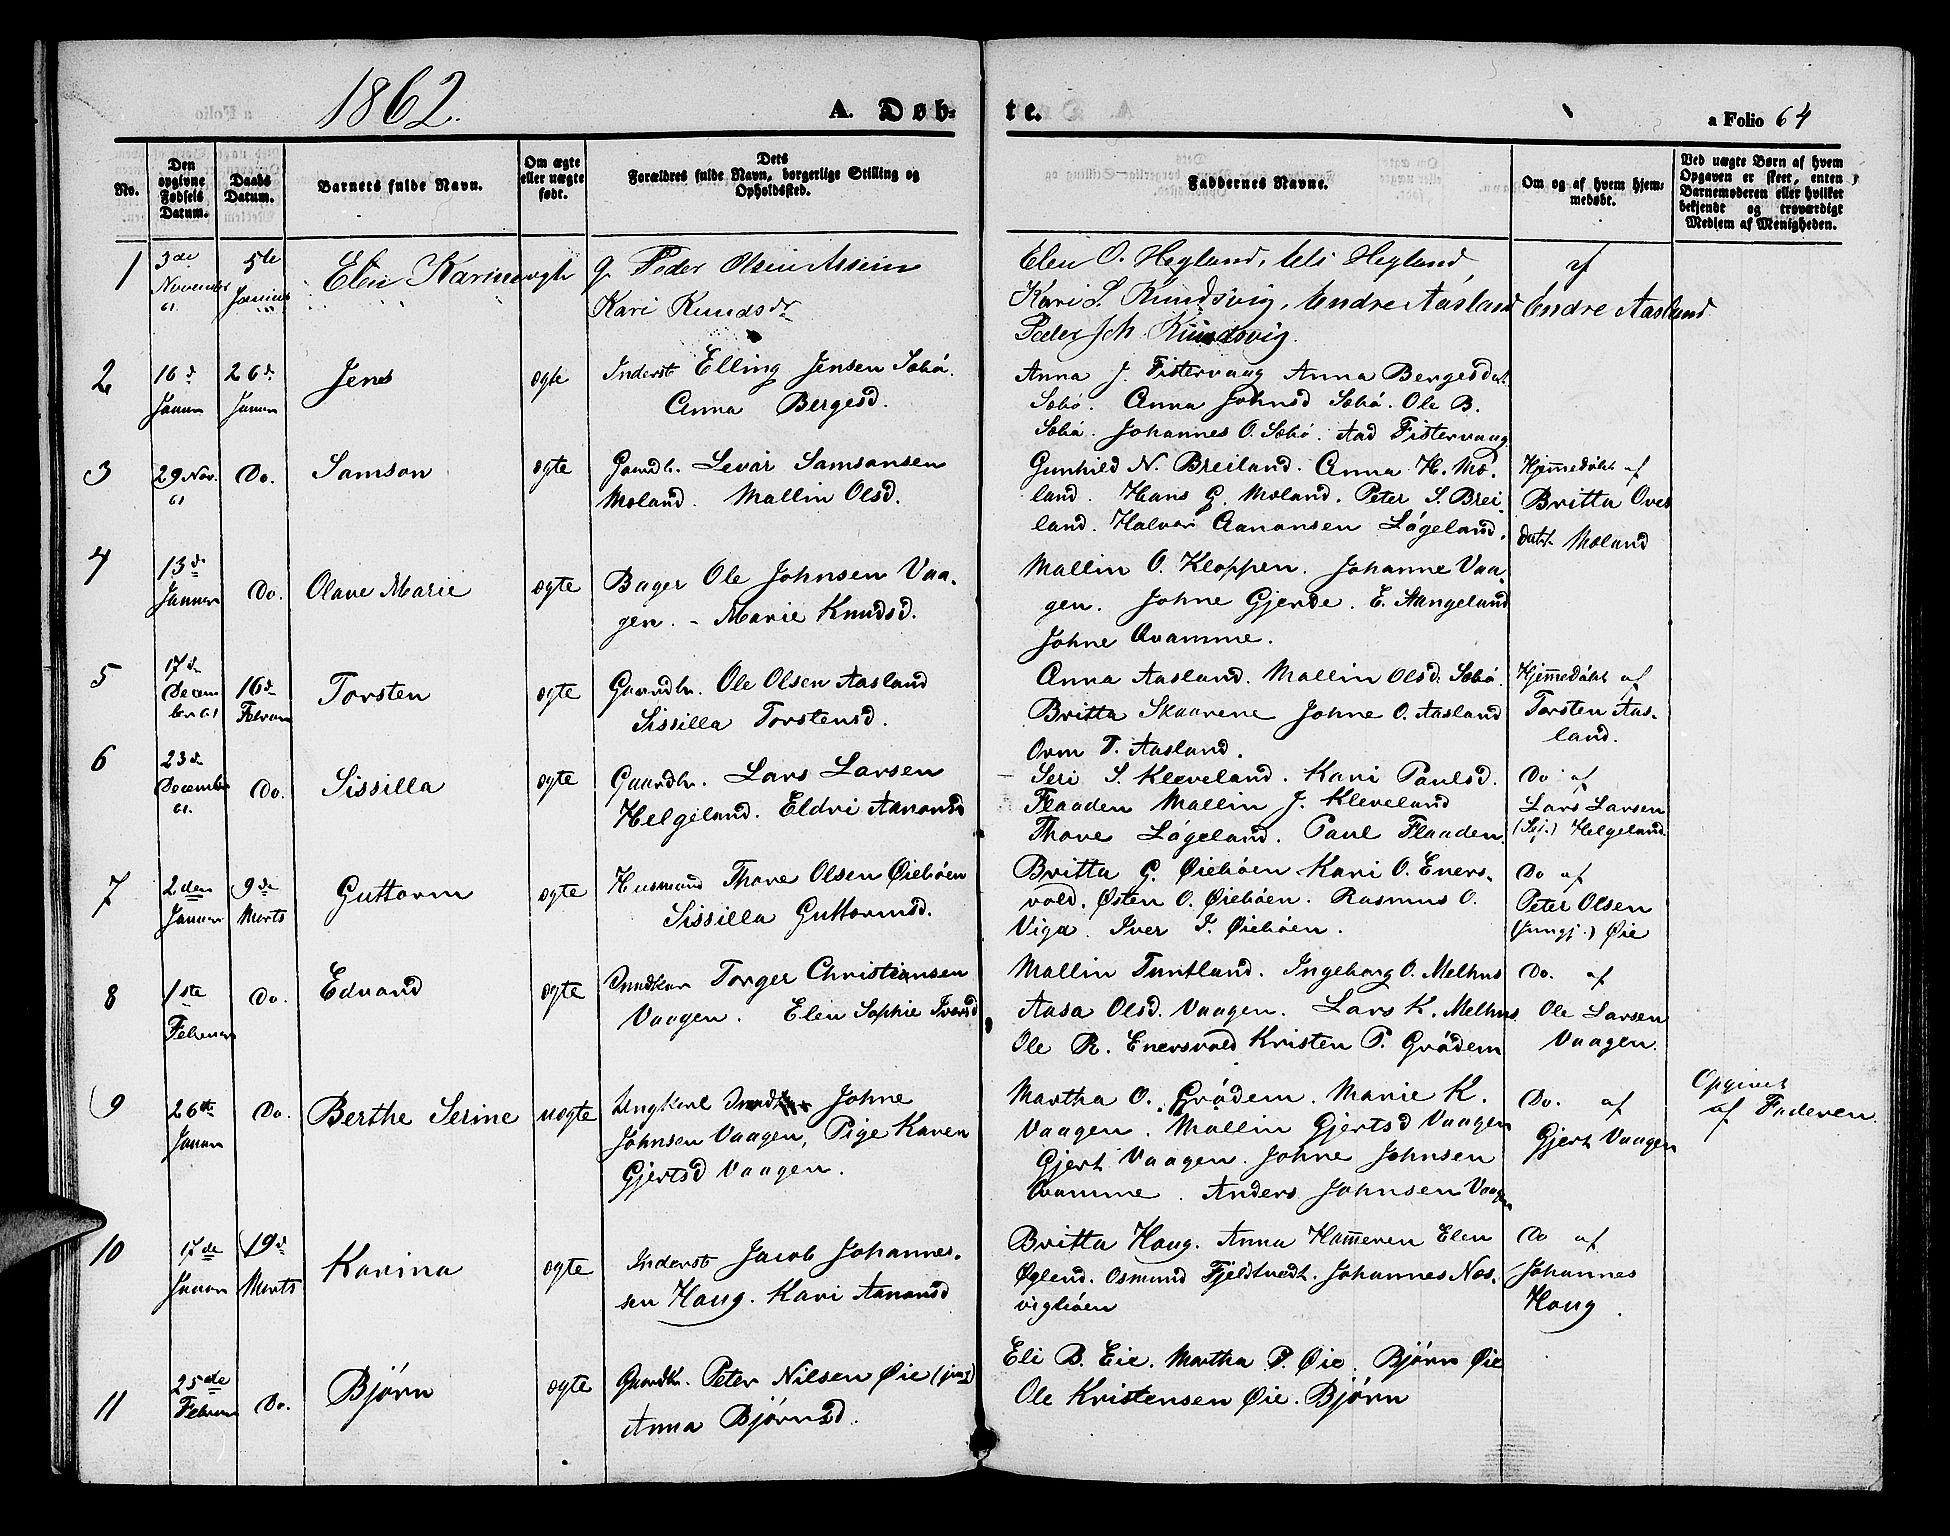 1862.
A. Døb-
te.
a Folio 64
No.
Den opgivne Fødsels Datum.
Daabs Datum.
Barnets fulde Navn.
Om ægte eller uægte født.
Dets Forældres fulde Navn, borgerlige Stilling og Opholdssted.
Faddernes Navne.
Om og af hvem hjemmedøbt.
Ved uægte Børn af hvem Opgaven er skeet, enten Barnemoderen eller hvilket bekjendt og troværdigt Medlem af Menigheden.
1
3de November 61
5te Januar
Elen Karine
ægte
g. Peder Olsen
Kari Knudsdr
Elen O. Hegland, Eli Hegland,
Kari S. Knudsvig, Endre Aasland
Peder Joh. Knudsvig.
af
Endre Aasland
2
16d Januar
26d Januar
Jens
ægte
Inderst Elling Jensen Søbø.
Anna Bergesd.
Anna J. Fistervaag Anna Bergesdat.
Søbø. Anna Johnsd Søbø. Ole B.
Søbø. Johannes O. Søbø. Aad Fistervaag
3
29 Nov. 61
Do.
Samson
ægte
Gaardbr. Levar Samsonsen
Moland. Mallin Olsd.
Gunhild N. Breiland. Anna H. Mo-
land. Hans G. Moland. Peter S. Brei-
land. Halvar Aanonsen Løgeland.
Hjemmedøbt af
Britta Overs
datt. Moland
4
13d Januar
Do.
Olave Marie
ægte
Bager Ole Johnsen Vaa-
gen. - Marie Knudsd.
Mallin O. Kloppen. Johanne Vaa-
gen. Johne Gjerde. E. Stangeland
Johne Qvamme.
5
17d December 61
16d Februar
Torsten
ægte
Gaardbr. Ole Olsen Aasland
Sissilla Torstensd.
Anna Aasland. Mallin Olsd. Søbø.
Britta Skaarene Johne O. Aasland
Orm T. Aasland.
Hjemmedøbt af
Torsten Aas-
land.
6
23d December 61.
Do.
Sissilla
ægte
Gaardbr. Lars Larsen
Helgeland. Eldri Aanonsd
Seri S. Kleveland. Kari Paulsd.
Flaaden Mallin J. Kleveland
Thore Løgeland. Paul Flaaden
Do af
Lars Larsen
Helgeland.
7
2den Januar
9de Marts
Guttorm
ægte
Husmand Thore Olsen Øiebøen
Sissilla Guttormsd.
Britta G. Øiebøen Kari O. Eners-
vold. Østen O. Øiebøen. Rasmus O.
Viga. Iver I. Øiebøen.
Do af
Peter Olsen
Øie
8
1ste Februar
Do.
Edvard
ægte
Torger Christiansen
Vaagen. Elen Sophie Iversd
Mallin Tuntland. Ingeborg O. Melhus
Aasa Olsd. Vaagen. Lars K. Melhus
Ole R. Enersvold Kristen P. Grødem
Do. af
Ole Larsen
Vaagen.
9
26de Januar
Do.
Berthe Serine
uægte
Ungkarl Johne
Johnsen Vaagen, Pige Karen
Gjertsd Vaagen.
Martha O. Grødem. Marie K.
Vaagen. Mallin Gjertsd Vaagen
Gjert Vaagen. Johne Johnsen
Qvamme. Anders Johnsen Vaagen
Do. af
Gjert Vaagen
Opgivet
af Faderen.
10
17de Januar
19d Marts
Karina
ægte
Inderst Jacob Johannes-
sen Haug. Kari Aanonsd
Britta Haug. Anna Hammeren Elen
Øglend. Osmund Fjeldtvedt. Johannes Næs-
vigbøen
Do af
Johannes
Haug.
11
25de Februar
Do.
Bjørn
ægte
Gaardbr. Peter Nilsen Øie
Anna Bjørnsd.
Eli B. Eie. Martha P. Øie. Bjørn Øie
Ole Kristensen Øie. Bjørn